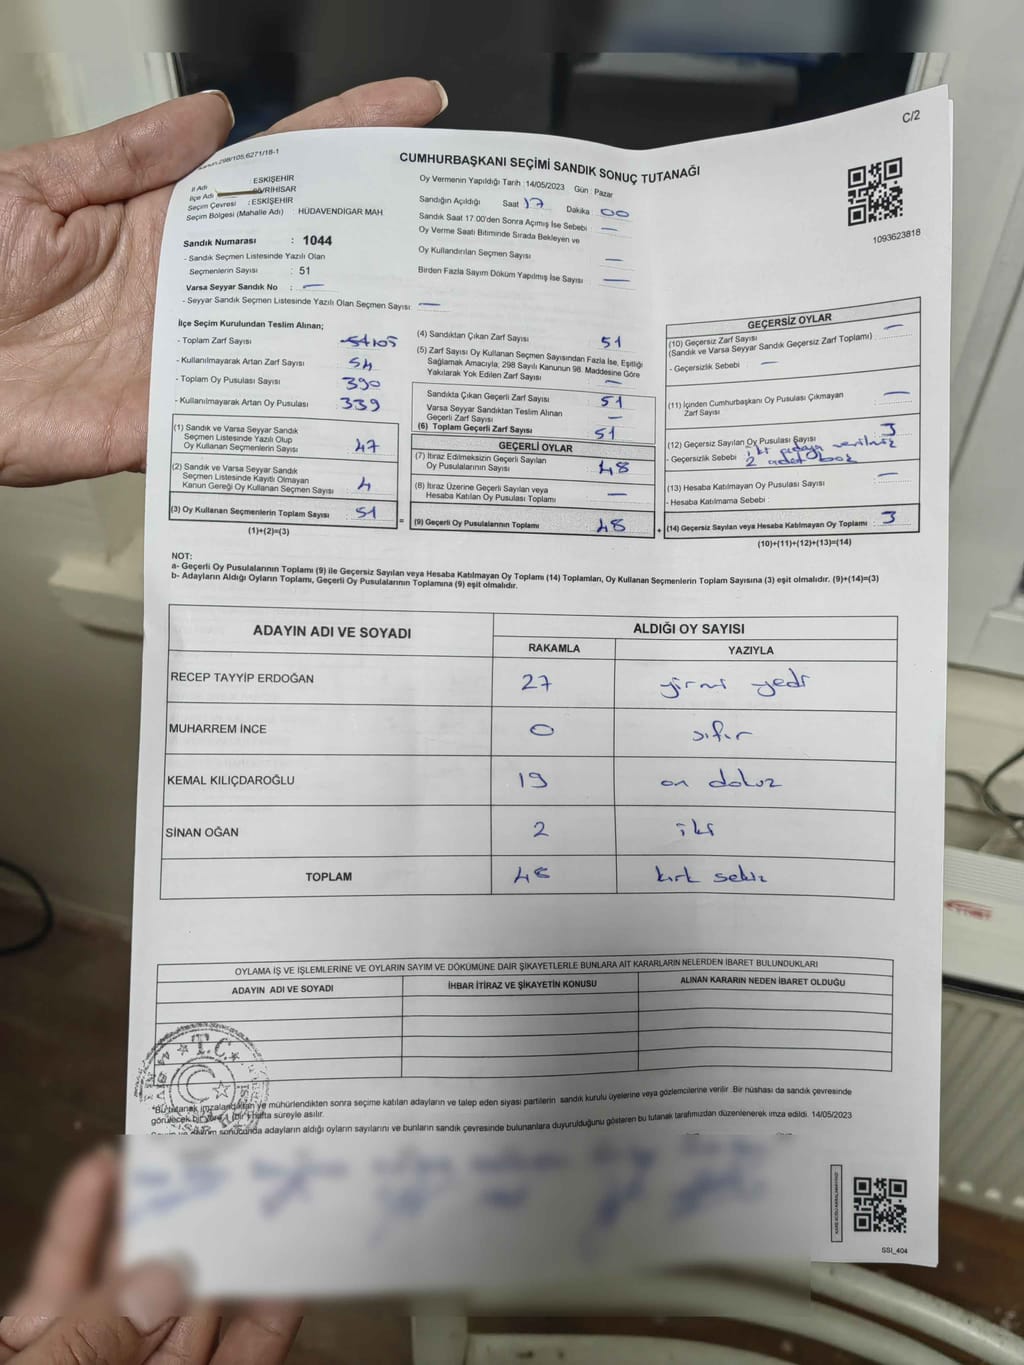 C/2
CUMHURBAŞKANI SEÇİMİ SANDIK SONUÇ TUTANAĞI
İl Adı : ESKİŞEHİR
İlçe Adı
Seçim Çevresi : ESKİŞEHİR
Seçim Bölgesi (Mahalle Adı) HÜDAVENDİGAR MAH
Sandık Numarası : 1044
- Sandık Seçmen Listesinde Yazılı Olan
Seçmenlerin Sayısı : 51
Varsa Seyyar Sandık No : —
- Seyyar Sandık Seçmen Listesinde Yazılı Olan Seçmen Sayısı: —
Oy Vermenin Yapıldığı Tarih :14/05/2023 Gün : Pazar
Sandığın Açıldığı Saat 17 Dakika 00
Sandık Saat 17:00'den Sonra Açımış İse Sebebi : —
Oy Verme Saati Bitiminde Sırada Bekleyen ve
Oy Kullandırılan Seçmen Sayısı —
Birden Fazla Sayım Döküm Yapılmış İse Sayısı : —
1093623818
İlçe Seçim Kurulundan Teslim Alınan;
- Toplam Zarf Sayısı 105
- Kullanılmayarak Artan Zarf Sayısı : 54
- Toplam Oy Pusulası Sayısı : 390
- Kullanılmayarak Artan Oy Pusulası : 339
(1) Sandık ve Varsa Seyyar Sandık
Seçmen Listesinde Yazılı Olup
Oy Kullanan Seçmenlerin Sayısı : 47
(2) Sandık ve Varsa Seyyar Sandık
Seçmen Listesinde Kayıtlı Olmayan
Kanun Gereği Oy Kullanan Seçmen Sayısı : 4
(3) Oy Kullanan Seçmenlerin Toplam Sayısı : 51
(1)+(2)=(3)
(4) Sandıktan Çıkan Zarf Sayısı 51
(5) Zarf Sayısı Oy Kullanan Seçmen Sayısından Fazla İse, Eşitliği
Sağlamak Amacıyla; 298 Sayılı Kanunun 98. Maddesine Göre
Yakılarak Yok Edilen Zarf Sayısı : —
Sandıkta Çıkan Geçerli Zarf Sayısı : 51
Varsa Seyyar Sandıktan Teslim Alınan
Geçerli Zarf Sayısı : —
(6) Toplam Geçerli Zarf Sayısı : 51
GEÇERLİ OYLAR
(7) İtiraz Edilmeksizin Geçerli Sayılan
Oy Pusulalarının Sayısı : 48
(8) İtiraz Üzerine Geçerli Sayılan veya
Hesaba Katılan Oy Pusulası Toplamı : —
= (9) Geçerli Oy Pusulalarının Toplamı : 48
GEÇERSİZ OYLAR
(10) Geçersiz Zarf Sayısı
(Sandık ve Varsa Seyyar Sandık Geçersiz Zarf Toplamı) : —
- Geçersizlik Sebebi : —
(11) İçinden Cumhurbaşkanı Oy Pusulası Çıkmayan
Zarf Sayısı : —
(12) Geçersiz Sayılan Oy Pusulası Sayısı : 3
- Geçersizlik Sebebi : iki adaya verilmiş
2 adet boş
(13) Hesaba Katılmayan Oy Pusulası Sayısı : —
- Hesaba Katılmama Sebebi :
+ (14) Geçersiz Sayılan veya Hesaba Katılmayan Oy Toplamı : 3
(10)+(11)+(12)+(13)=(14)
NOT:
a- Geçerli Oy Pusulalarının Toplamı (9) ile Geçersiz Sayılan veya Hesaba Katılmayan Oy Toplamı (14) Toplamları, Oy Kullanan Seçmenlerin Toplam Sayısına (3) eşit olmalıdır. (9)+(14)=(3)
b- Adayların Aldığı Oyların Toplamı, Geçerli Oy Pusulalarının Toplamına (9) eşit olmalıdır.
ADAYIN ADI VE SOYADI ALDIĞI OY SAYISI
RAKAMLA YAZIYLA
RECEP TAYYİP ERDOĞAN 27 yirmi yedi
MUHARREM İNCE 0 sıfır
KEMAL KILIÇDAROĞLU 19 on dokuz
SİNAN OĞAN 2 iki
TOPLAM 48 kırk sekiz
OYLAMA İŞ VE İŞLEMLERİNE VE OYLARIN SAYIM VE DÖKÜMÜNE DAİR ŞİKAYETLERLE BUNLARA AİT KARARLARIN NELERDEN İBARET BULUNDUKLARI
ADAYIN ADI VE SOYADI İHBAR İTİRAZ VE ŞİKAYETİN KONUSU ALINAN KARARIN NEDEN İBARET OLDUĞU
T.C.
*Bu tutanak imzalandıktan ve mühürlendikten sonra seçime katılan adayların ve talep eden siyasi partilerin sandık kurulu üyelerine veya gözlemcilerine verilir. Bir nüshası da sandık çevresinde
görülecek bir yere 1 (bir) hafta süreyle asılır.
sonucunda adayların aldığı oyların sayılarını ve bunların sandık çevresinde bulunanlara duyurulduğunu gösteren bu tutanak tarafımızdan düzenlenerek imza edildi. 14/05/2023
SSI_404